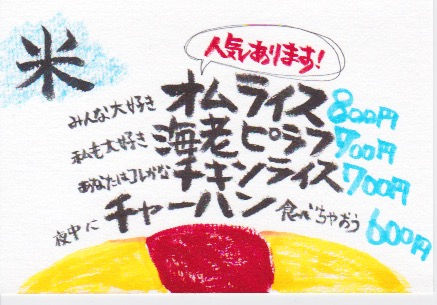 米
人気あります!
みんな大好き オムライス 800円
私も大好き 海老ピラフ 900円
あなたはコレかな チキンライス 700円
夜中に チャーハン 食べちゃおう 600円